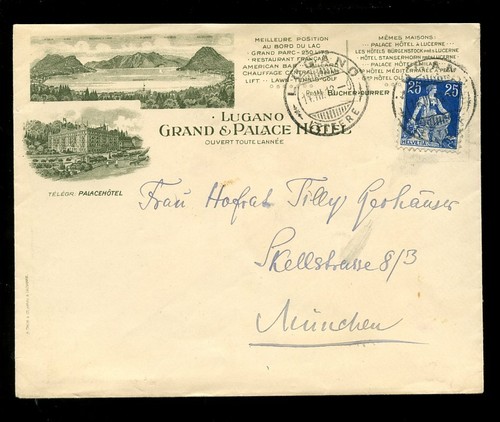 MEILLEURE POSITION
AU BORD DU LAC
GRAND PARC - 250 LITS
RESTAURANT FRANÇAIS
AMERICAN BAR
CHAUFFAGE CENTRAL
LIFT - LAWN-TENNIS-GOLF
MÊMES MAISONS:
PALACE HÔTEL À LUCERNE
LES HÔTELS BÜRGENSTOCK PRÈS LUCERNE
HÔTEL STANSERHORN PRÈS LUCERNE
PALACE HÔTEL MILAN
HÔTEL MÉDITERRANÉE
BUCHER-DURRER
LUGANO
LETTERE
25 25
HELVETIA
LUGANO
GRAND & PALACE HÔTEL
OUVERT TOUTE L'ANNÉE
TÉLÉGR. PALACEHÔTEL
Frau Hofrat Tilly Gerhäuser
Skellstrasse 8/3
München